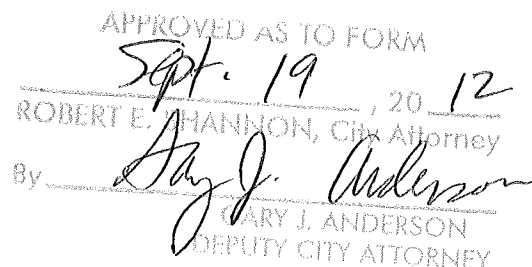 APPROVED AS TO FORM
Sept. 19, 20 12
ROBERT E. SHANNON, City Attorney
By Gary J. Anderson
GARY J. ANDERSON
DEPUTY CITY ATTORNEY